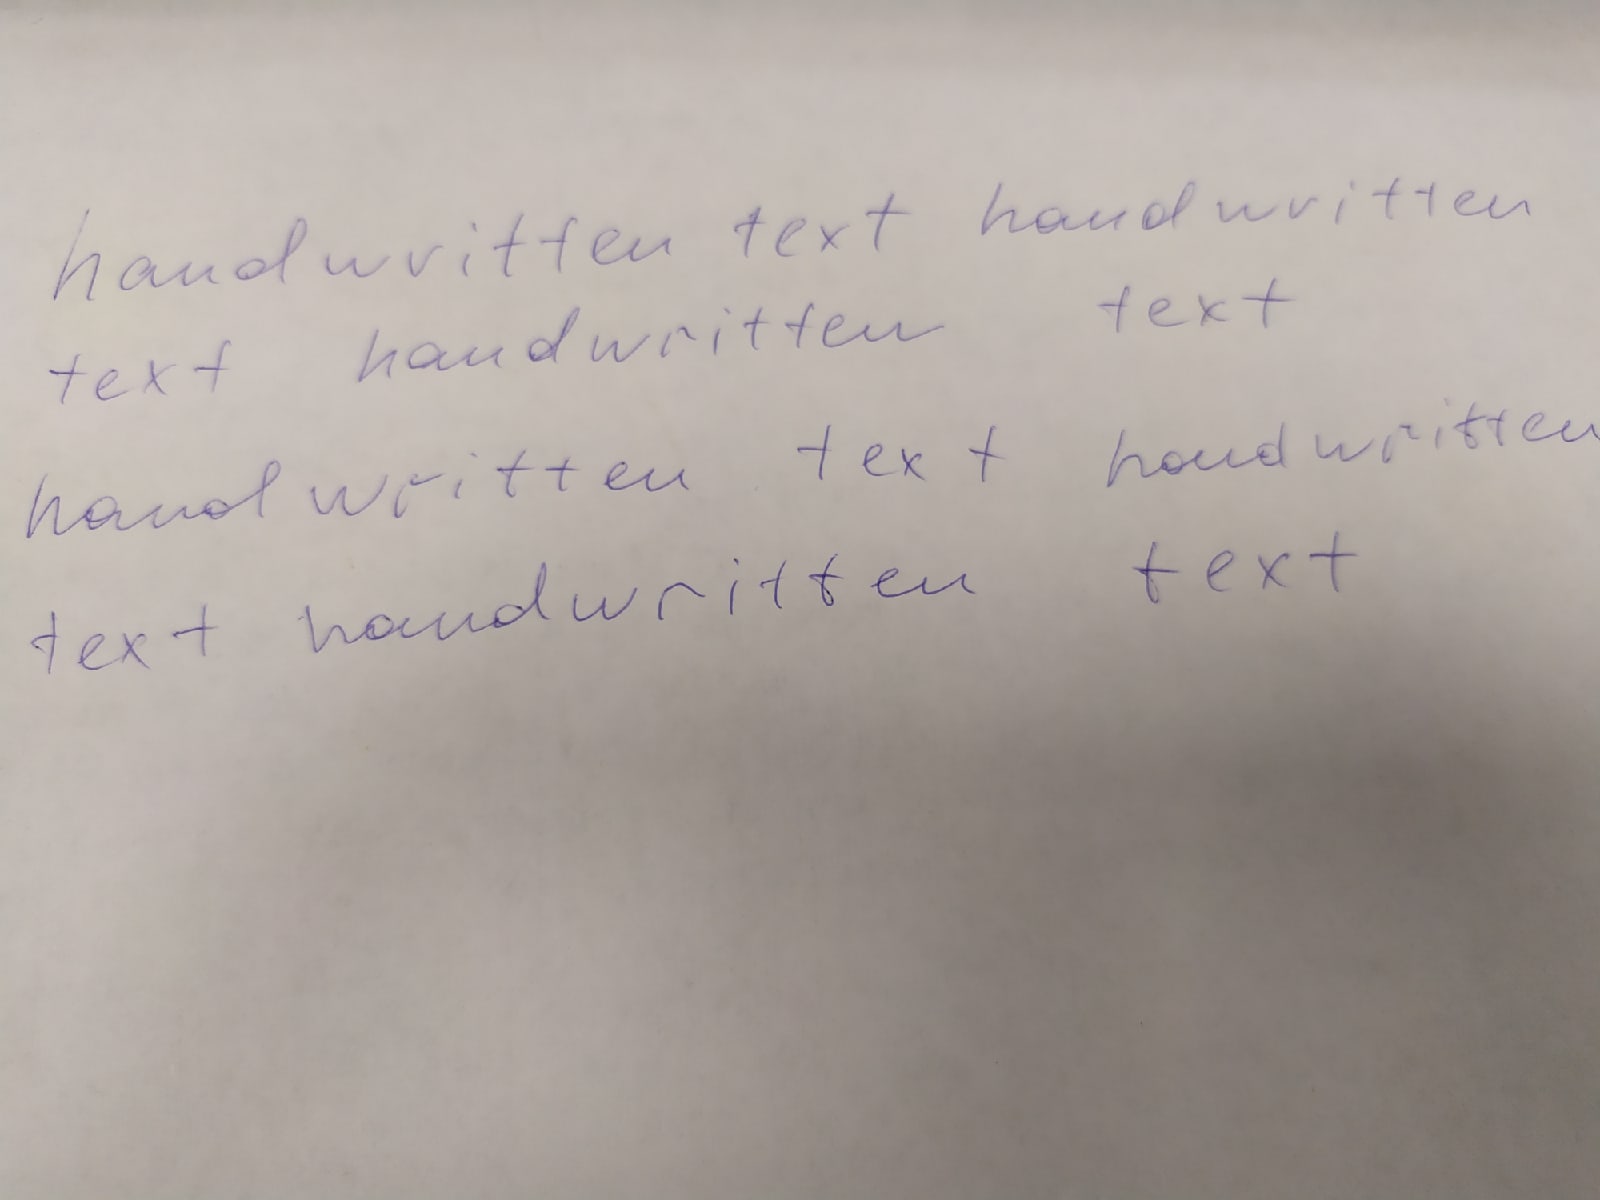 handwritten text handwritten
text handwritten text
handwritten text handwritten
text handwritten text